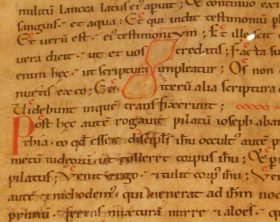 militū lancea latus ei apuit & continuo ex
sanguis. et aqua; Et qui uidit testimoniū p
Et uerū est ei testimoniū; Et ille
uera dicit. ut et uos credatis; facta
enim hęc. ut scriptura impleatur; Os non
ex eo; Et iterū alia scriptura
Uidebunt inquē transfixerunt;
Post hęc autē rogauit pilatū ioseph ab
thia. eo qd esset discipls ihu occult' autē p
metū iudeorū. ut tolleret corpus ihu; Et p
pilatus; Venit ergo & tulit corp' ihu; Ve
autē & nichodem' qui uenerat ad ihm
primū. ferens mixturā mirrę & aloes.